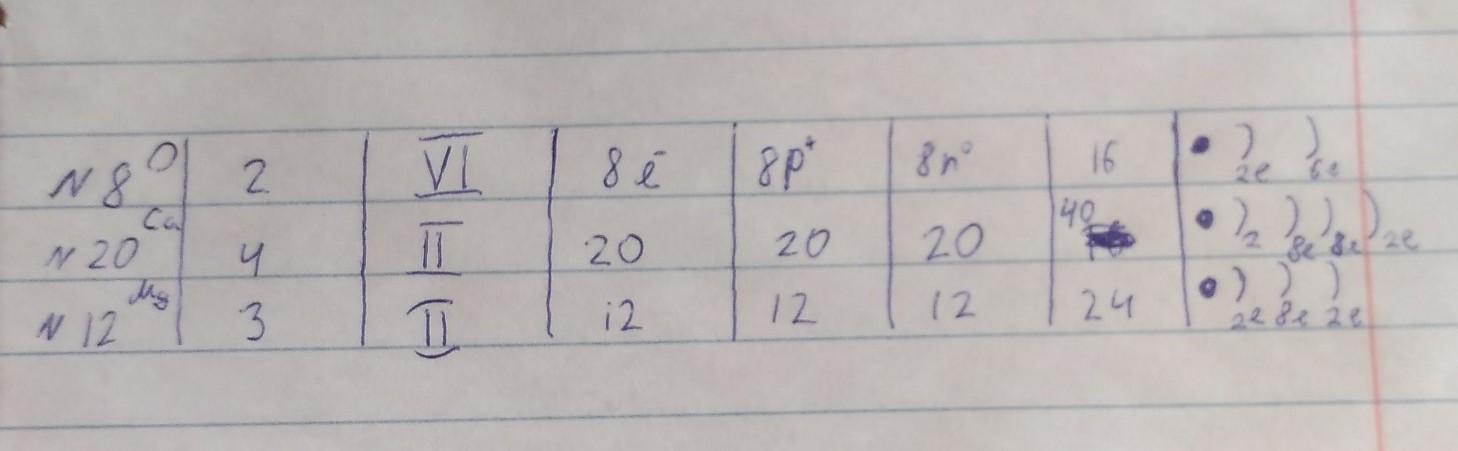 N 8 O 2 VI 8 ē 8p⁺ 8n° 16 • )2e )6e
N 20 Ca 4 II 20 20 20 40 • )2 )8e )8e )2e
N 12 Mg 3 II 12 12 12 24 • )2e )8e )2e